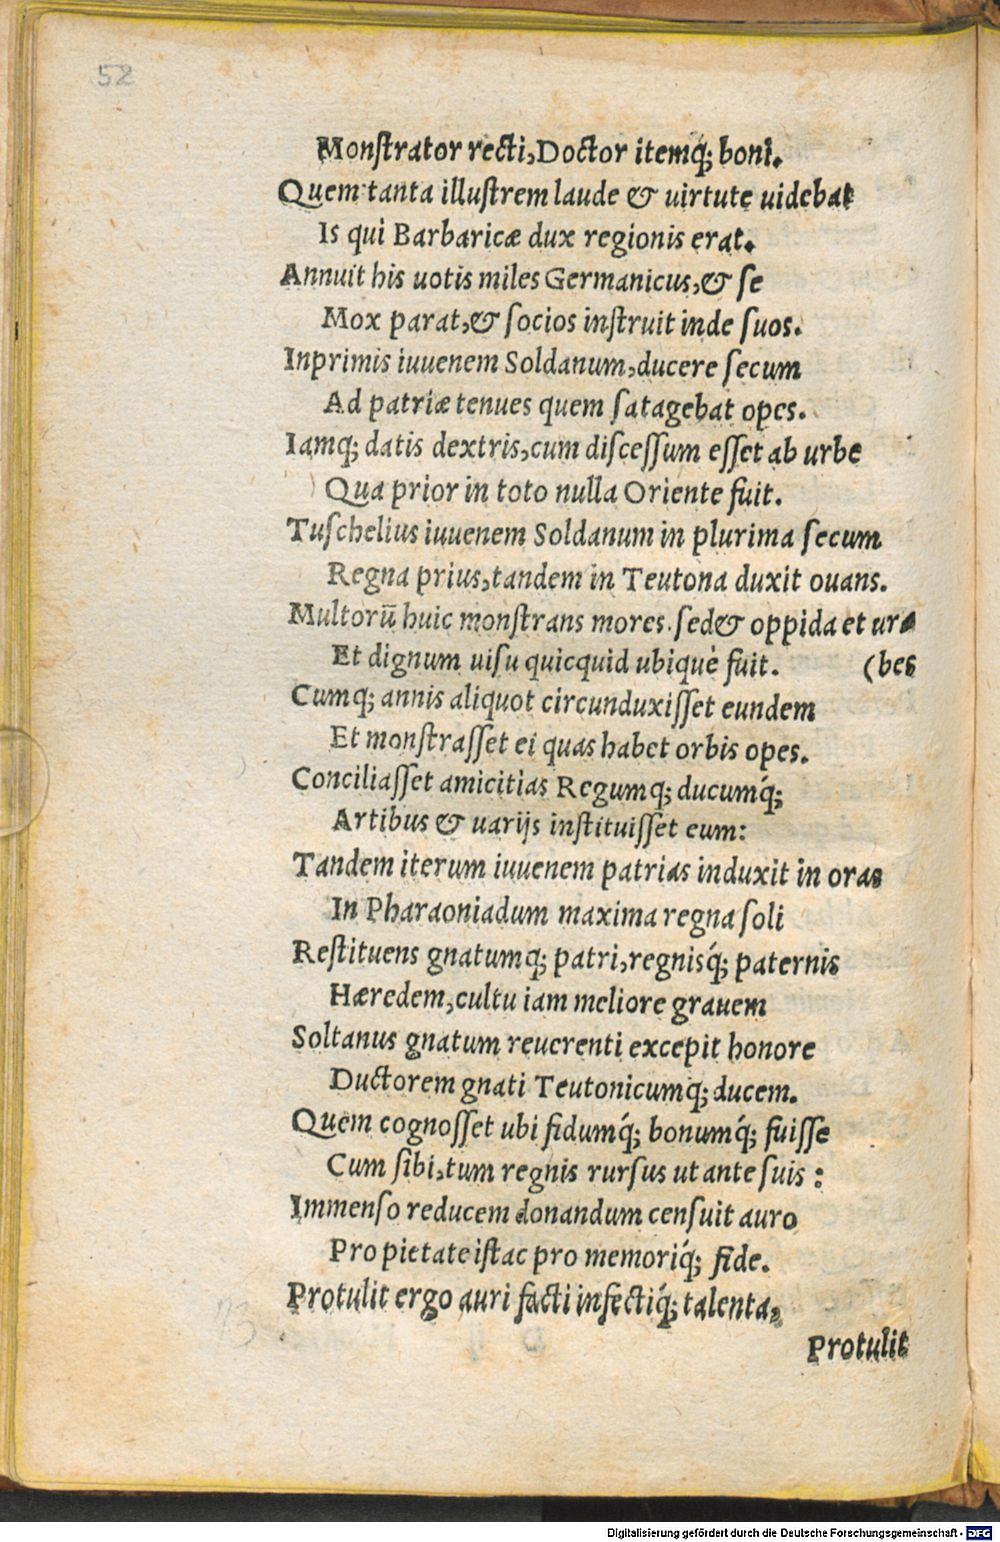 52
Monſtrator recti, Doctor itemq́; boni.
Quem tanta illuſtrem laude & uirtute uidebat
Is qui Barbaricæ dux regionis erat.
Annuit his uotis miles Germanicus, & ſe
Mox parat, & ſocios inſtruit inde ſuos.
Inprimis iuuenem Soldanum, ducere ſecum
Ad patriæ tenues quem ſatagebat opes.
Iamq; datis dextris, cum diſceſſum eſſet ab urbe
Qua prior in toto nulla Oriente fuit.
Tuſchelius iuuenem Soldanum in plurima ſecum
Regna prius, tandem in Teutona duxit ouans.
Multorū huic monſtrans mores. ſed & oppida et ur
Et dignum uiſu quicquid ubiquè fuit. (bes
Cumq; annis aliquot circunduxiſſet eundem
Et monſtraſſet ei quas habet orbis opes.
Conciliaſſet amicitias Regumq; ducumq́;
Artibus & uarijs inſtituiſſet eum:
Tandem iterum iuuenem patrias induxit in oras
In Pharaoniadum maxima regna ſoli
Reſtituens gnatumq; patri, regnisq́; paternis
Hæredem, cultu iam meliore grauem
Soltanus gnatum reuerenti excepit honore
Ductorem gnati Teutonicumq; ducem.
Quem cognoſſet ubi fidumq́; bonumq́; fuiſſe
Cum ſibi, tum regnis rurſus ut ante ſuis:
Immenſo reducem donandum cenſuit auro
Pro pietate iſtac pro memoriq́; fide.
Protulit ergo auri facti infectiq́; talenta,
Protulit
Digitalisierung gefördert durch die Deutsche Forschungsgemeinschaft - DFG